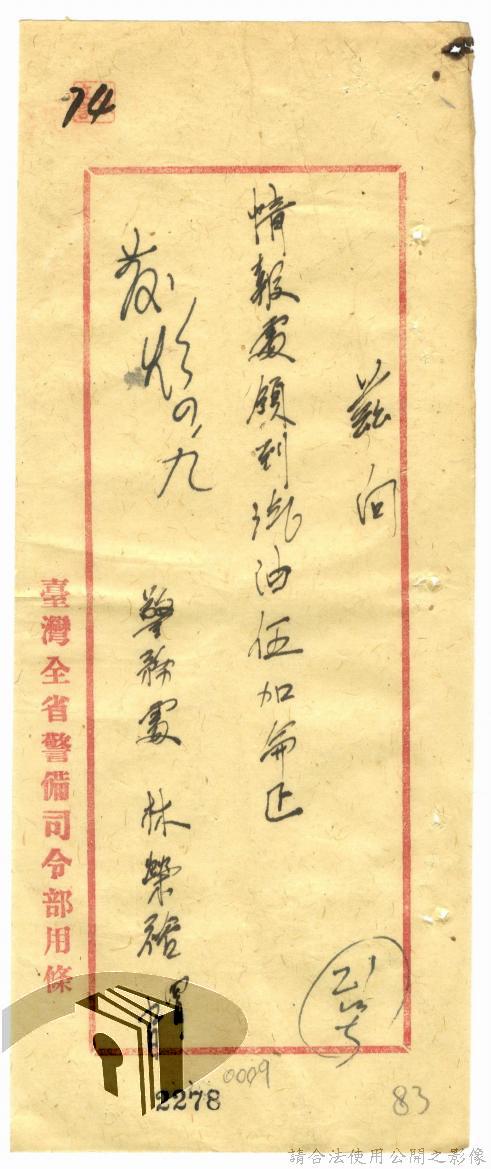 74
茲向
情報處領到汽油伍加侖正
警務處 林榮
四、九
臺灣全省警備司令部用條
2278
0009
83
請合法使用公開之影像